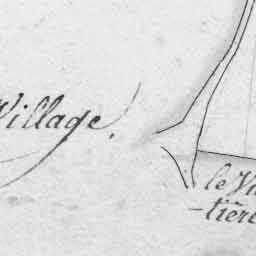 Village.
le Vil
-tière